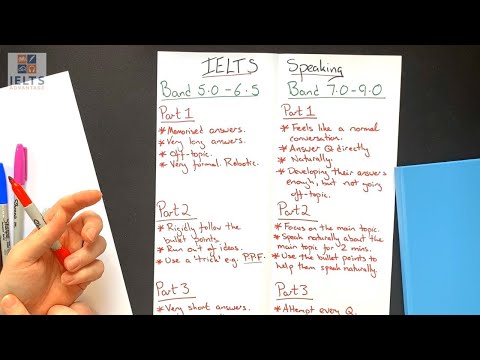 IELTS
ADVANTAGE
IELTS Speaking
Band 5.0-6.5
Part 1
* Memorised answers.
* Very long answers.
* Off-topic.
* Very formal. Robotic.
Part 2
* Rigidly follow the
bullet points.
* Run out of ideas.
* Use a 'trick' e.g. P.P.F.
Part 3
* Very short answers.
Band 7.0-9.0
Part 1
* Feels like a normal
conversation.
* Answer Q directly
* Naturally.
* Developing their answers
enough, but not going
off-topic.
Part 2
* Focus on the main topic.
* Speak naturally about the
main topic for 2 mins.
* Use the bullet points to
help them speak naturally.
Part 3
* Attempt every Q.
Sharpie